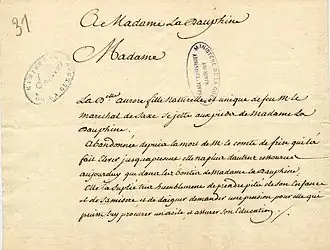 31
A Madame La Dauphine
Madame
La D.elle aurore fille Naturelle et unique de feu M. le
marechal de Saxe se jette aux pieds de Madame La
Dauphine.
Abandonnée depuis la mort de M. le comte de frise qui la
fait Elever jusqu'apresent elle na plus dautres ressources
aujourduy que dans les bontés de Madame La Dauphine,
Elle la Suplie tres humblement de prendre pitie de Son Enfance
et de Sa misere et de daigner demander une pension pour elle qui
puisse luy procurer un azile et assurer Son Education.